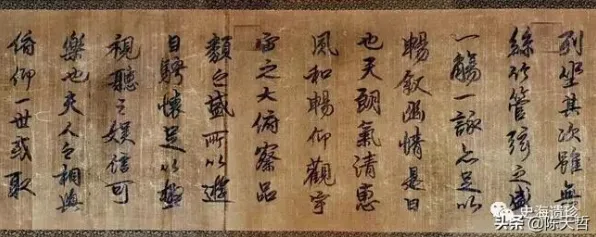 列坐其次雖無
絲竹管弦之盛
一觴一詠亦足以
暢敘幽情是日
也天朗氣清惠
風和暢仰觀宇
宙之大俯察品
類之盛所以遊
目騁懷足以極
視聽之娛信可
樂也夫人之相與
俯仰一世或取
史海遗珍
头条@陈大哲